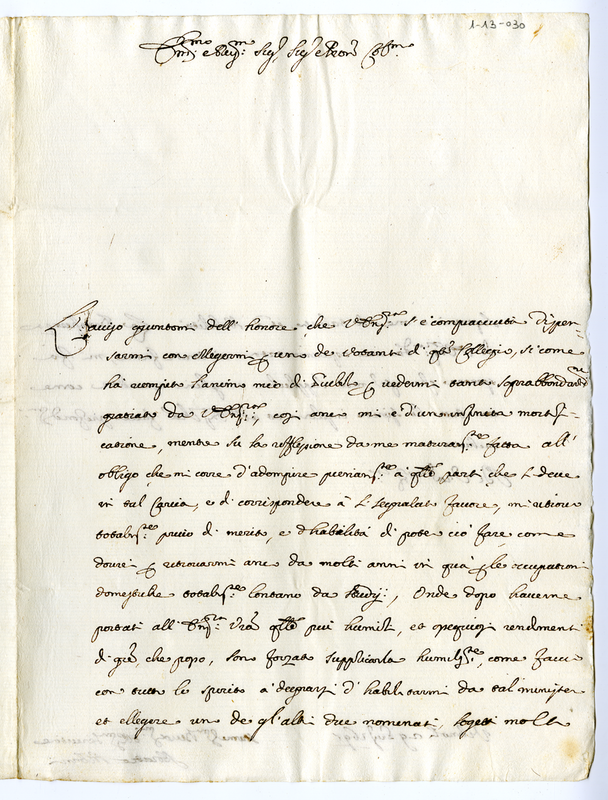 1-13-030
Em.mo e Rev.mo Sig.r Sig.r e Pron Col.mo
L'aviso giuntomi dell'honore, che V. Em.za s'è compiacciuta dispen-
sarmi con ellegermi p un de votanti di q.to Collegio, si come
hà riempito l'animo mio di giubilo p vedermi tanto soprabbondantem.te
gratiato da V. Em.za, così anc mi è d'un infinita mortifi-
catione, mentre su la riflessione da me maturam.te fatta all'
obligo che mi corre d'adempire pienam.te a q.lle parti che si deve
in tal Carica, e di corrispondere à sì segnalat favore, mi ritrovo
totalm.te privo di merito, e d'habilità di poter ciò fare come
dovrei p ritrovarmi anc da molti anni in quà p le occupationi
domestiche totalm.te lontano da studij; Onde dopo haverne
portati all' Em.za V.ra q.lli più humili, et ossequiosi rendimenti
di gr.e, che posso, son forzato supplicarla humilm.te, come faccio
con tutto lo spirito à degnarsi d'habilitarmi da tal ministero
et ellegere un de gl'altri due nominati, sogetti molto